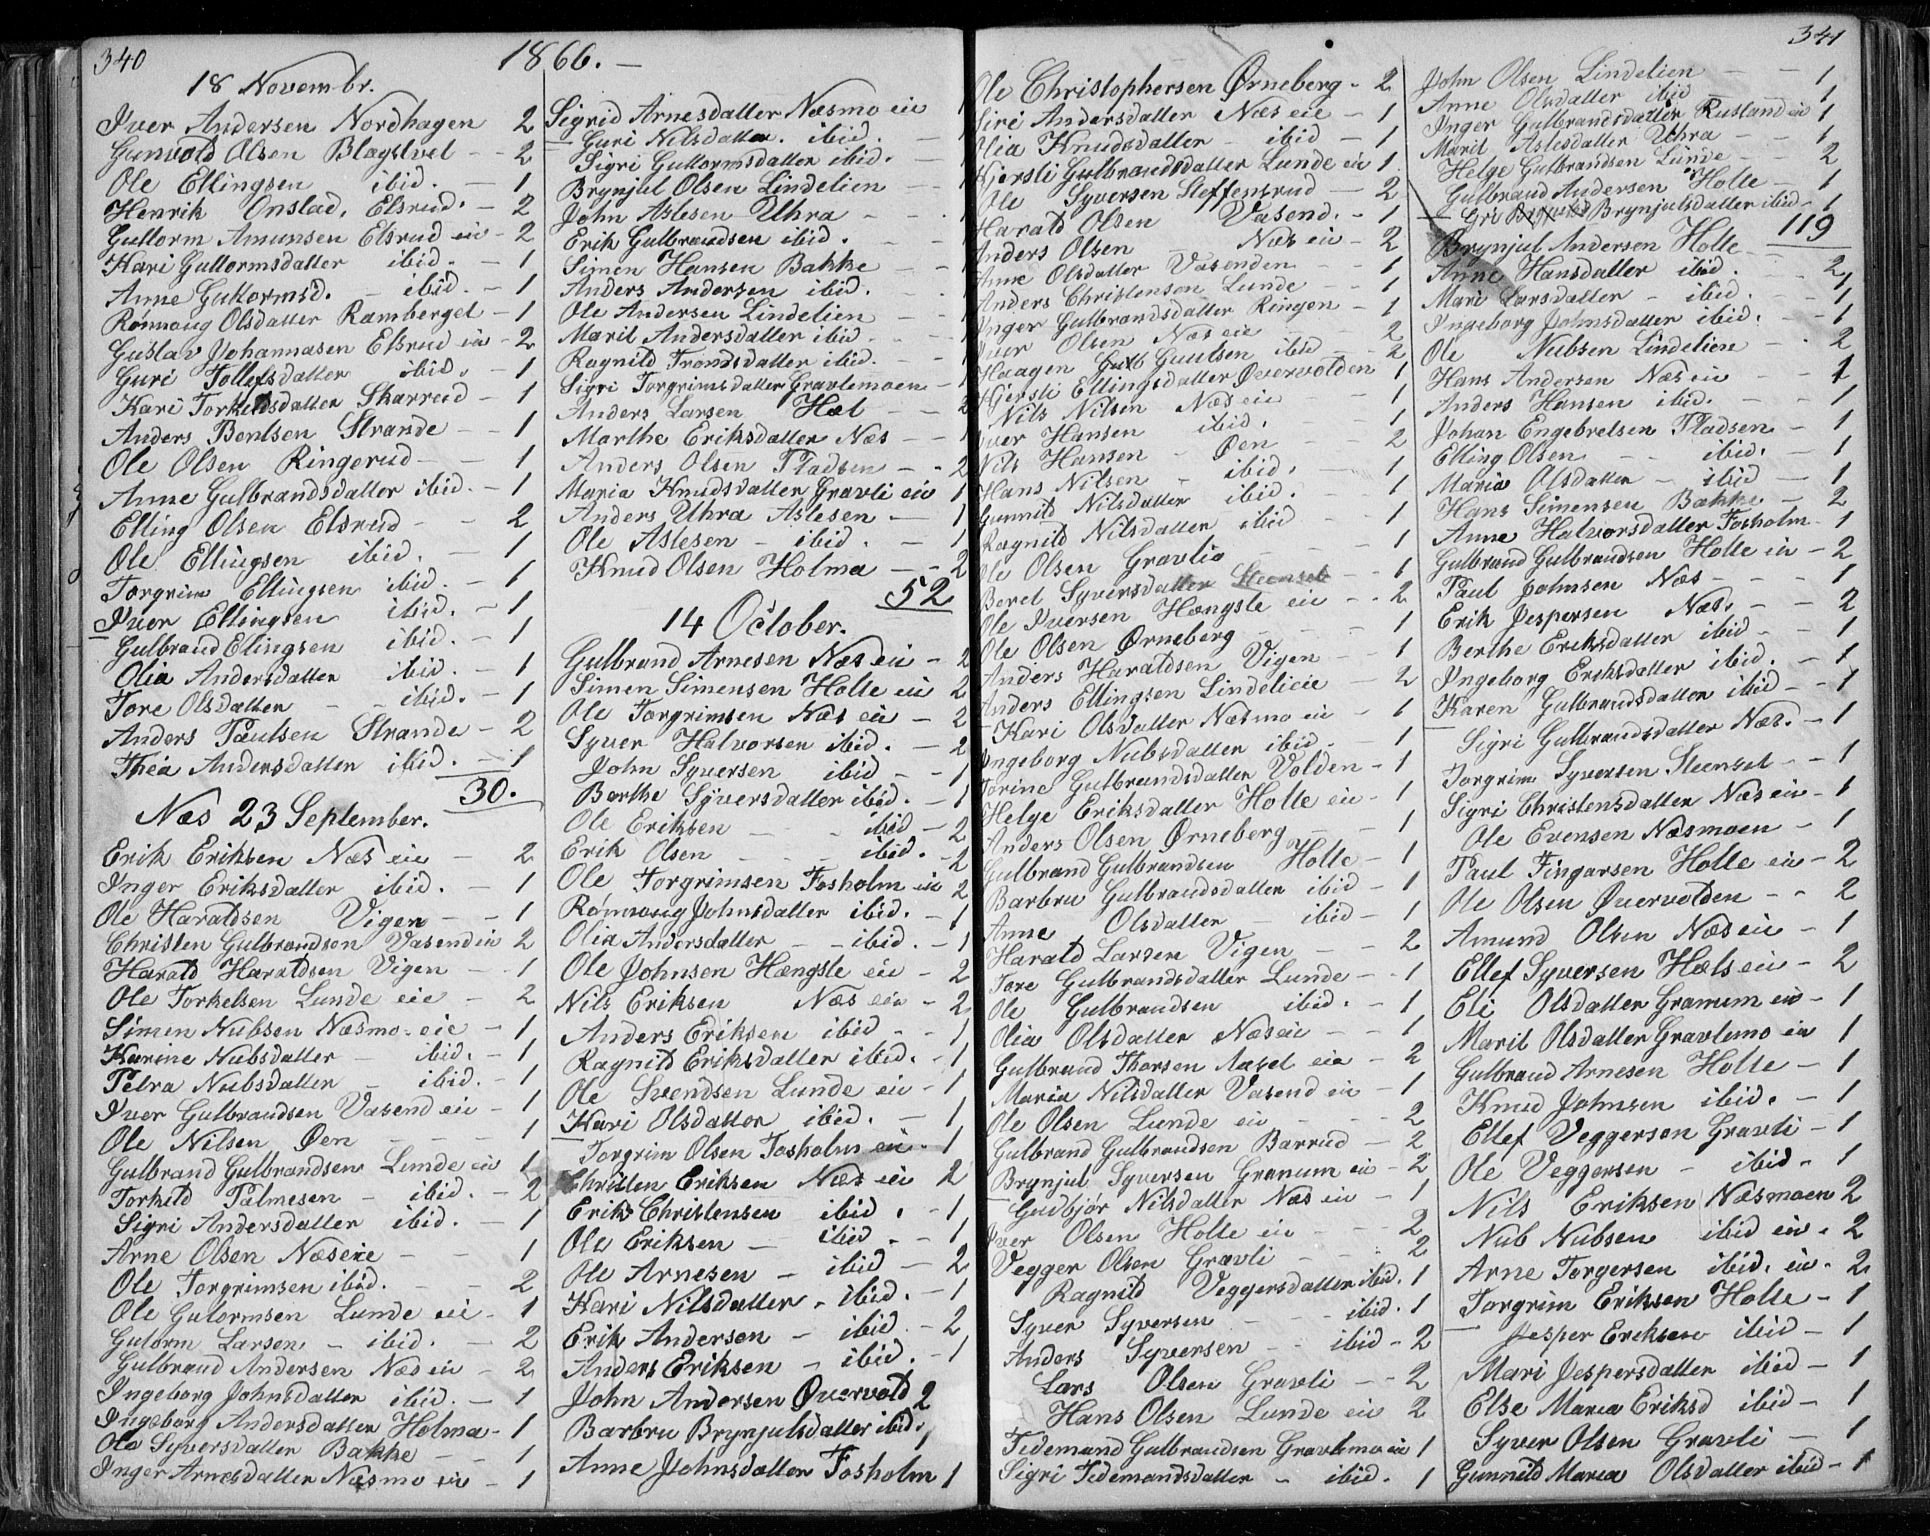 340
1866. —
18 Novembr.
Iver Andersen Nordhagen 2
Gunvold Olsen Blagstvet - 2
Ole Ellingsen ibid. — 1
Henrik Onstad, Elsrud. — 2
Guttorm Amunsen Elsrud eie - 2
Kari Guttormsdatter ibid. — 1
Anne Guttormsd. ibid. — 1
Rønnaug Olsdatter Ramberget - 1
Gustav Johannasen Elsrud eie - 2
Guri Tollefsdatter ibid. — 1
Kari Torkeldsdatter Skarrud — 1
Anders Bentsen Strande — 1
Ole Olsen Ringerud — 1
Anne Gulbrandsdatter ibid. — 1
Elling Olsen Elsrud - - 2
Ole Ellingsen ibid. — 1
Torgrim Ellingsen ibid. — 1
Iver Ellingsen ibid. — 1
Gulbrand Elingsen ibid. — 1
Olia Andersdatter ibid. — 1
Tore Olsdatter — ibid. — 1
Anders Paulsen Strande — 2
Thea Andersdatter ibid. — 1
30.
Næs 23 September.
Erik Eriksen Næs eie — 2
Inger Eriksdatter ibid. — 1
Ole Haraldsen Vigen — 1
Christen Gulbrandsen Vasend eie 2
Harald Haraldsen Vigen — 1
Ole Torkelsen Lunde eie — 2
Simen Nubsen Næsmo eie — 1
Karine Nubsdatter — ibid. — 1
Petra Nubsdatter — ibid. — 1
Iver Gulbrandsen Vasend eie — 1
Ole Nilsen Øen — — 1
Gulbrand Gulbrandsen Lunde eie 1
Torkild Palmesen — ibid. — 2
Sigri Andersdatter ibid. — 1
Arne Olsen Næs eie — — 1
Ole Torgrimsen ibid. — 2
Ole Gutormsen Lunde eie - 1
Gutorm Larsen — ibid. 2
Gulbrand Andersen Næs eie — 2
Ingeborg Johnsdatter ibid. — 1
Ingeborg Andersdatter Holma - 1
Ole Syversdatter Bakke — 1
Inger Arnesdatter Næsmo eie — 1
Sigrid Arnesdatter Næsmo eie 1
Guri Nilsdatter ibid. 1
Sigri Guttormsdatter ibid. — 1
Brynjul Olsen Lindelien — 1
John Aslesen Uhra — — 1
Erik Gulbrandsen ibid. — 1
Simen Hansen Bakke — 1
Anders Andersen ibid. 1
Ole Andersen Lindelien — 1
Marit Andersdatter ibid. — 1
Ragnild Trondsdatter ibid. — 1
Sigri Torgrimsdatter Gravlemoen — 1
Anders Larsen Hæl — — 2
Marthe Eriksdatter Næs — 1
Anders Olsen Pladsen — - 2
Maria Knudsdatter Gravli eie 1
Anders Uhra Aslesen — 1
Ole Aslesen — ibid. — 1
Knud Olsen Holma — - 2
52
14 October.
Gulbrand Arnesen Næs eie — 2
Simen Simensen Holte eie 2
Ole Torgrimsen Næs eie — 2
Syver Halvorsen ibid. — 2
John Syversen ibid — 1
Berthe Syversdatter ibid. — 1
Ole Eriksen — — ibid — 2
Erik Olsen ibid. — 2
Ole Torgrimsen Fosholm eie 2
Rønnaug Johnsdatter ibid. — 1
Olia Andersdatter — ibid. — 1
Ole Johnsen Hængsle eie — 2
Nils Eriksen Næs eie — 2
Anders Eriksen ibid — 1
Ragnild Eriksdatter ibid. — 1
Ole Svendsen Lunde eie — 1
Kari Olsdatter ibid. — 1
Torgrim Olsen Fosholm eie - 1
Christen Eriksen Næs eie 2
Erik Christensen ibid . — 1
Ole Eriksen — ibid . — 1
Ole Arnesen — ibid — 2
Kari Nilsdatter - ibid. — 1
Erik Andersen — ibid — 2
Anders Eriksen — ibid. — 1
John Andersen Øvervold 2
Barbru Brynjulsdatter ibid. 1
Anne Johnsdatter Fosholm 1
341
Ole Christophersen Ørneberg - 2
Siri Andersdatter Næs eie — 1
Olia Knudsdatter — ibid — 1
Kjersti Gulbrandsdatter Lunde eie 1
Ole Syversen Steffensrud — 2
Harald Olsen Vasend. - 1
Anders Olsen Næs eie — 2
Anne Olsdatter Vasenden — 1
Anders Christensen Lunde — 1
Inger Gulbrandsdatter Ringen — 1
Iver Olsen Næs eie 2
Haagen Guulsen ibid — 2
Kjersti Ellingsdatter Øvervolden 1
Nils Nilsen Næs eie — 1
Iver Hansen ibid. — 1
Nils Hansen Øen — 2
Hans Nilsen — ibid. — 1
Gunnild Nilsdatter ibid. — 1
Ragnild Nilsdatter ibid — 1
Ole Olsen Gravlie — 1
Beret Syversdatter Steenset — 1
Ole Iversen Hængsle eie - - 2
Ole Olsen Ørneberg — 1
Anders Haraldsen Vigen — 1
Anders Ellingsen Lindelien — 2
Kari Olsdatter Næsmo eie — 1
Ingeborg Nubsdatter ibid. — 1
Torine Gulbrandsdatter Volden — 1
Helge Eriksdatter Holte eie - 1
Anders Olsen Ørneberg — 1
Gulbrand Gulbrandsen Holte — 1
Barbru Gulbrandsdatter ibid — 1
Anne Olsdatter — ibid — 1
Harald Larsen Vigen — 2
Tore Gulbrandsdatter Lunde — 1
Ole Gulbrandsen ibid. — 1
Olia Olsdatter Næs eie — 1
Gulbrand Thorsen Aasel eie — 2
Maria Nilsdatter Vasend eie — 1
Ole Olsen Lunde eie — — 2
Gulbrand Gulbrandsen Barrud — 2
Brynjul Syversen Granum eie — 2
Gudbjør Nilsdatter Næs eie — 1
Iver Olsen Holte eie — — 2
Vegger Olsen Gravli — — 2
Ragnild Veggersdatter ibid. 1
Syver Syversen — — ibid. 1
Anders Syversen — ibid — 2
Lars Olsen Gravli — - 2
Hans Olsen Lunde eie 2
Tidemand Gulbrandsen Gravlemo eie 1
Sigri Tidemandsdatter — ibid. 1
John Olsen Lindelien — — 1
Anne Olsdatter ibid — — 1
Inger Gulbrandsdatter Rustand eie 1
Marit Aslesdatter Uhra — 1
Helge Gulbrandsen Lunde — 2
Gulbrand Andersen Holte — 1
Gri Brynjulsdatter ibid - 1
119
Brynjul Andersen Holte — 2
Anne Hansdatter ibid. — 1
Mari Larsdatter — ibid. — 1
Ingeborg Johnsdatter ibid. — 1
Ole Nubsen Lindelien — . 2
Hans Andersen Næs eie — 1
Anders Hansen ibid. — 1
Johan Engebretsen Pladsen — 1
Elling Olsen — ibid. — 1
Maria Olsdatter — ibid — 1
Hans Simensen Bakke — 2
Anne Halvorsdatter Fosholm - 1
Gulbrand Gulbrandsen Holte eie — 2
Paul Johnsen Næs — — 1
Erik Jespersen Næs. — — 2
Berthe Eriksdatter ibid — 1
Ingeborg Eriksdatter ibid. — 1
Karen Gulbrandsdatter ibid — 1
Sigri Gulbrandsdatter Næs. — 1
Torgrim Syversen Steenset — 1
Sigri Christensdatter Næs eie — 1
Ole Evensen Næsmoen — 1
Paul Fingarsen Holte eie — 2
Ole Olsen Øvervolden — - 2
Amund Olsen Næs eie — 1
Ellef Syversen Hæls eie — 2
Eli Olsdatter Granum eie — 1
Marit Olsdatter Gravlemo eie 1
Gulbrand Arnesen Holte — 1
Knud Johnsen ibid. — 1
Ellef Veggersen Gravli — 1
Ole Veggersen — ibid - 1
Nils Eriksen Næsmoen 2
Nub Nubsen ibid eie . 2
Arne Torgersen ibid. eie . 2
Torgrim Eriksen Holte — 1
Jesper Eriksen ibid — 1
Mari Jespersdatter ibid — 1
Else Maria Eriksd ibid — 1
Syver Olsen Gravli — 1
Gunnild Maria Olsdatter ibid - 1